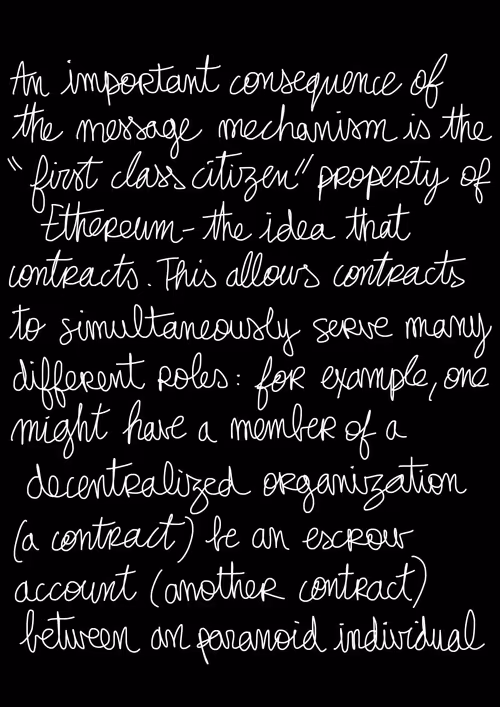 An important consequence of
the message mechanism is the
"first class citizen" property of
Ethereum - the idea that
contracts. This allows contracts
to simultaneously serve many
different roles: for example, one
might have a member of a
decentralized organization
(a contract) be an escrow
account (another contract)
between an paranoid individual